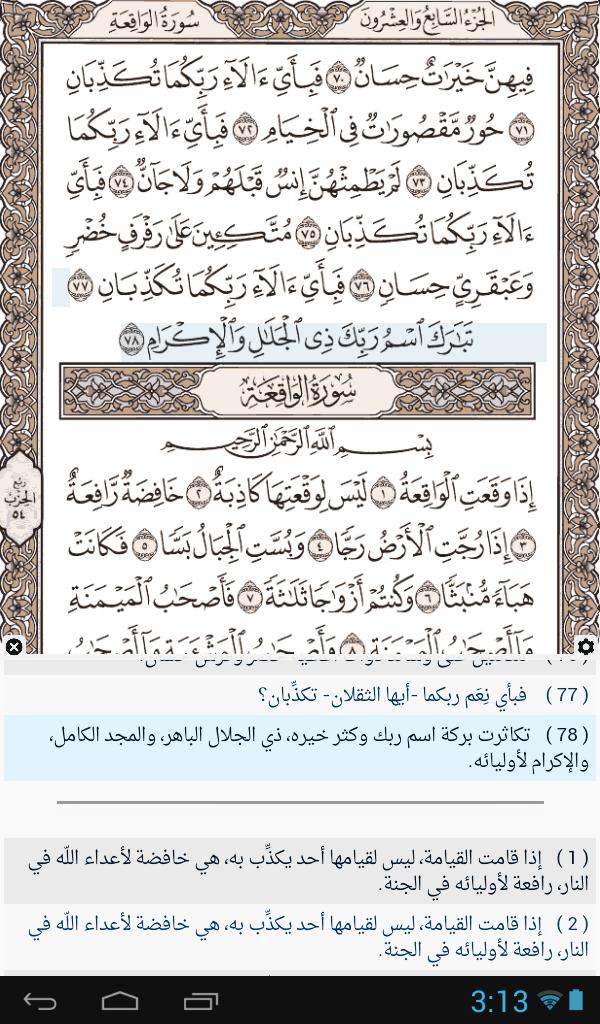 سُورَةُ الوَاقِعَةِ الجُزْءُ السَّابِعُ وَالعِشْرُونَ
فِيهِنَّ خَيْرَٰتٌ حِسَانٌ ٧٠ فَبِأَيِّ ءَالَآءِ رَبِّكُمَا تُكَذِّبَانِ
٧١ حُورٌ مَّقْصُورَٰتٌ فِي ٱلْخِيَامِ ٧٢ فَبِأَيِّ ءَالَآءِ رَبِّكُمَا
تُكَذِّبَانِ ٧٣ لَمْ يَطْمِثْهُنَّ إِنسٌ قَبْلَهُمْ وَلَا جَآنٌّ ٧٤ فَبِأَيِّ
ءَالَآءِ رَبِّكُمَا تُكَذِّبَانِ ٧٥ مُتَّكِـِٔينَ عَلَىٰ رَفْرَفٍ خُضْرٍ
وَعَبْقَرِيٍّ حِسَانٍ ٧٦ فَبِأَيِّ ءَالَآءِ رَبِّكُمَا تُكَذِّبَانِ ٧٧
تَبَٰرَكَ ٱسْمُ رَبِّكَ ذِي ٱلْجَلَٰلِ وَٱلْإِكْرَامِ ٧٨
سُورَةُ الوَاقِعَةِ
بِسْمِ ٱللَّهِ ٱلرَّحْمَٰنِ ٱلرَّحِيمِ
إِذَا وَقَعَتِ ٱلْوَاقِعَةُ ١ لَيْسَ لِوَقْعَتِهَا كَاذِبَةٌ ٢ خَافِضَةٌ رَّافِعَةٌ
٣ إِذَا رُجَّتِ ٱلْأَرْضُ رَجًّا ٤ وَبُسَّتِ ٱلْجِبَالُ بَسًّا ٥ فَكَانَتْ
هَبَآءً مُّنۢبَثًّا ٦ وَكُنتُمْ أَزْوَٰجًا ثَلَٰثَةً ٧ فَأَصْحَٰبُ ٱلْمَيْمَنَةِ
مَآ أَصْحَٰبُ ٱلْمَيْمَنَةِ ٨ وَأَصْحَٰبُ ٱلْمَشْـَٔمَةِ مَآ أَصْحَٰبُ
ربع
الحزب
٥٤
( 77 ) فبأي نِعَم ربكما -أيها الثقلان- تكذِّبان؟
( 78 ) تكاثرت بركة اسم ربك وكثر خيره، ذي الجلال الباهر، والمجد الكامل،
والإكرام لأوليائه.
( 1 ) إذا قامت القيامة، ليس لقيامها أحد يكذِّب به، هي خافضة لأعداء الله في
النار، رافعة لأوليائه في الجنة.
( 2 ) إذا قامت القيامة، ليس لقيامها أحد يكذِّب به، هي خافضة لأعداء الله في
النار، رافعة لأوليائه في الجنة.
3:13